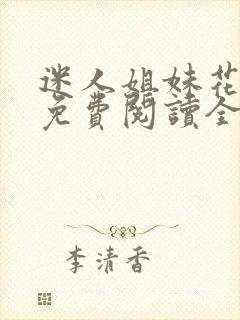 迷人姐妹花
免費閱讀全
李清香